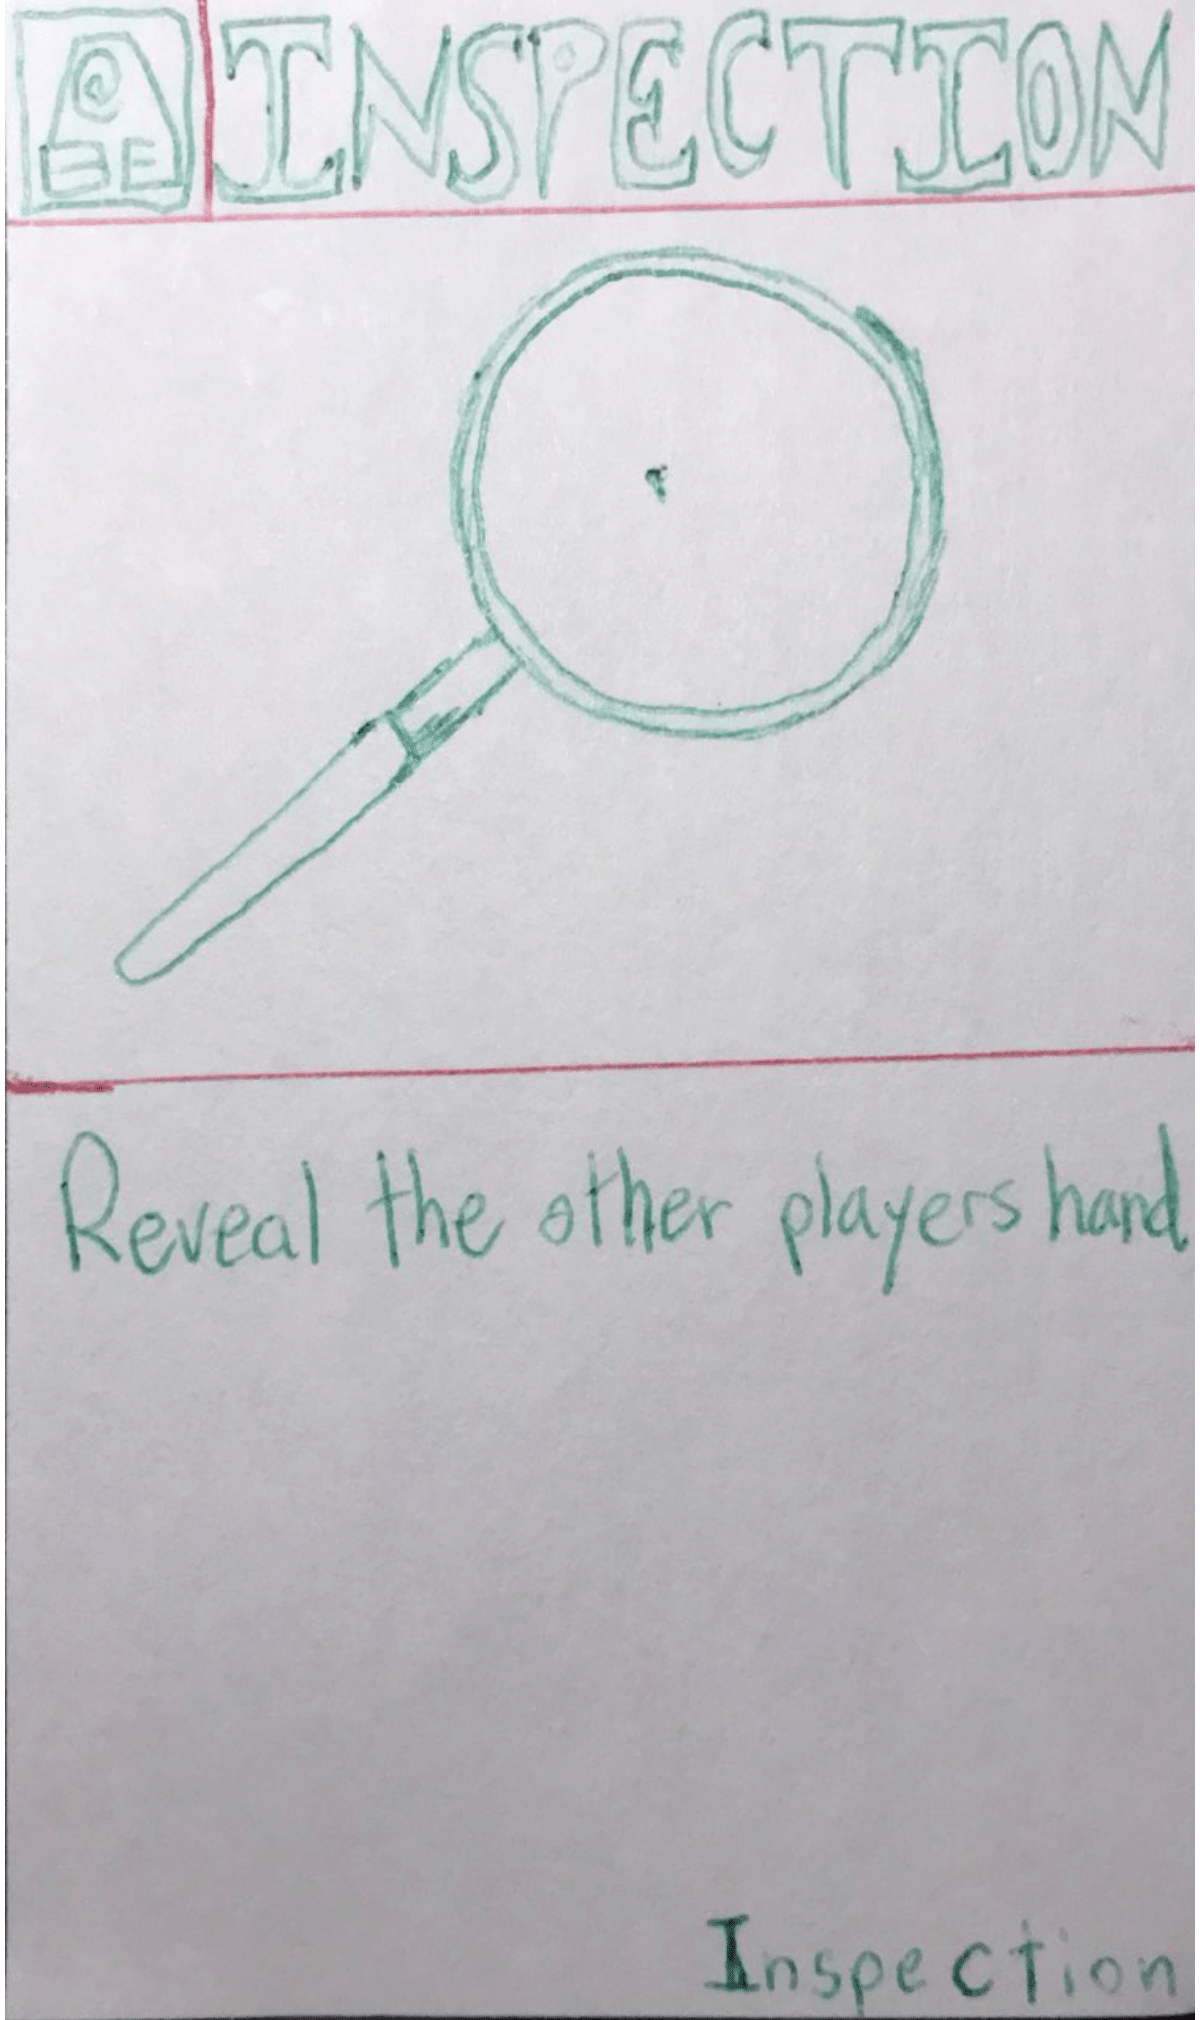 INSPECTION
Reveal the other players hand
Inspection